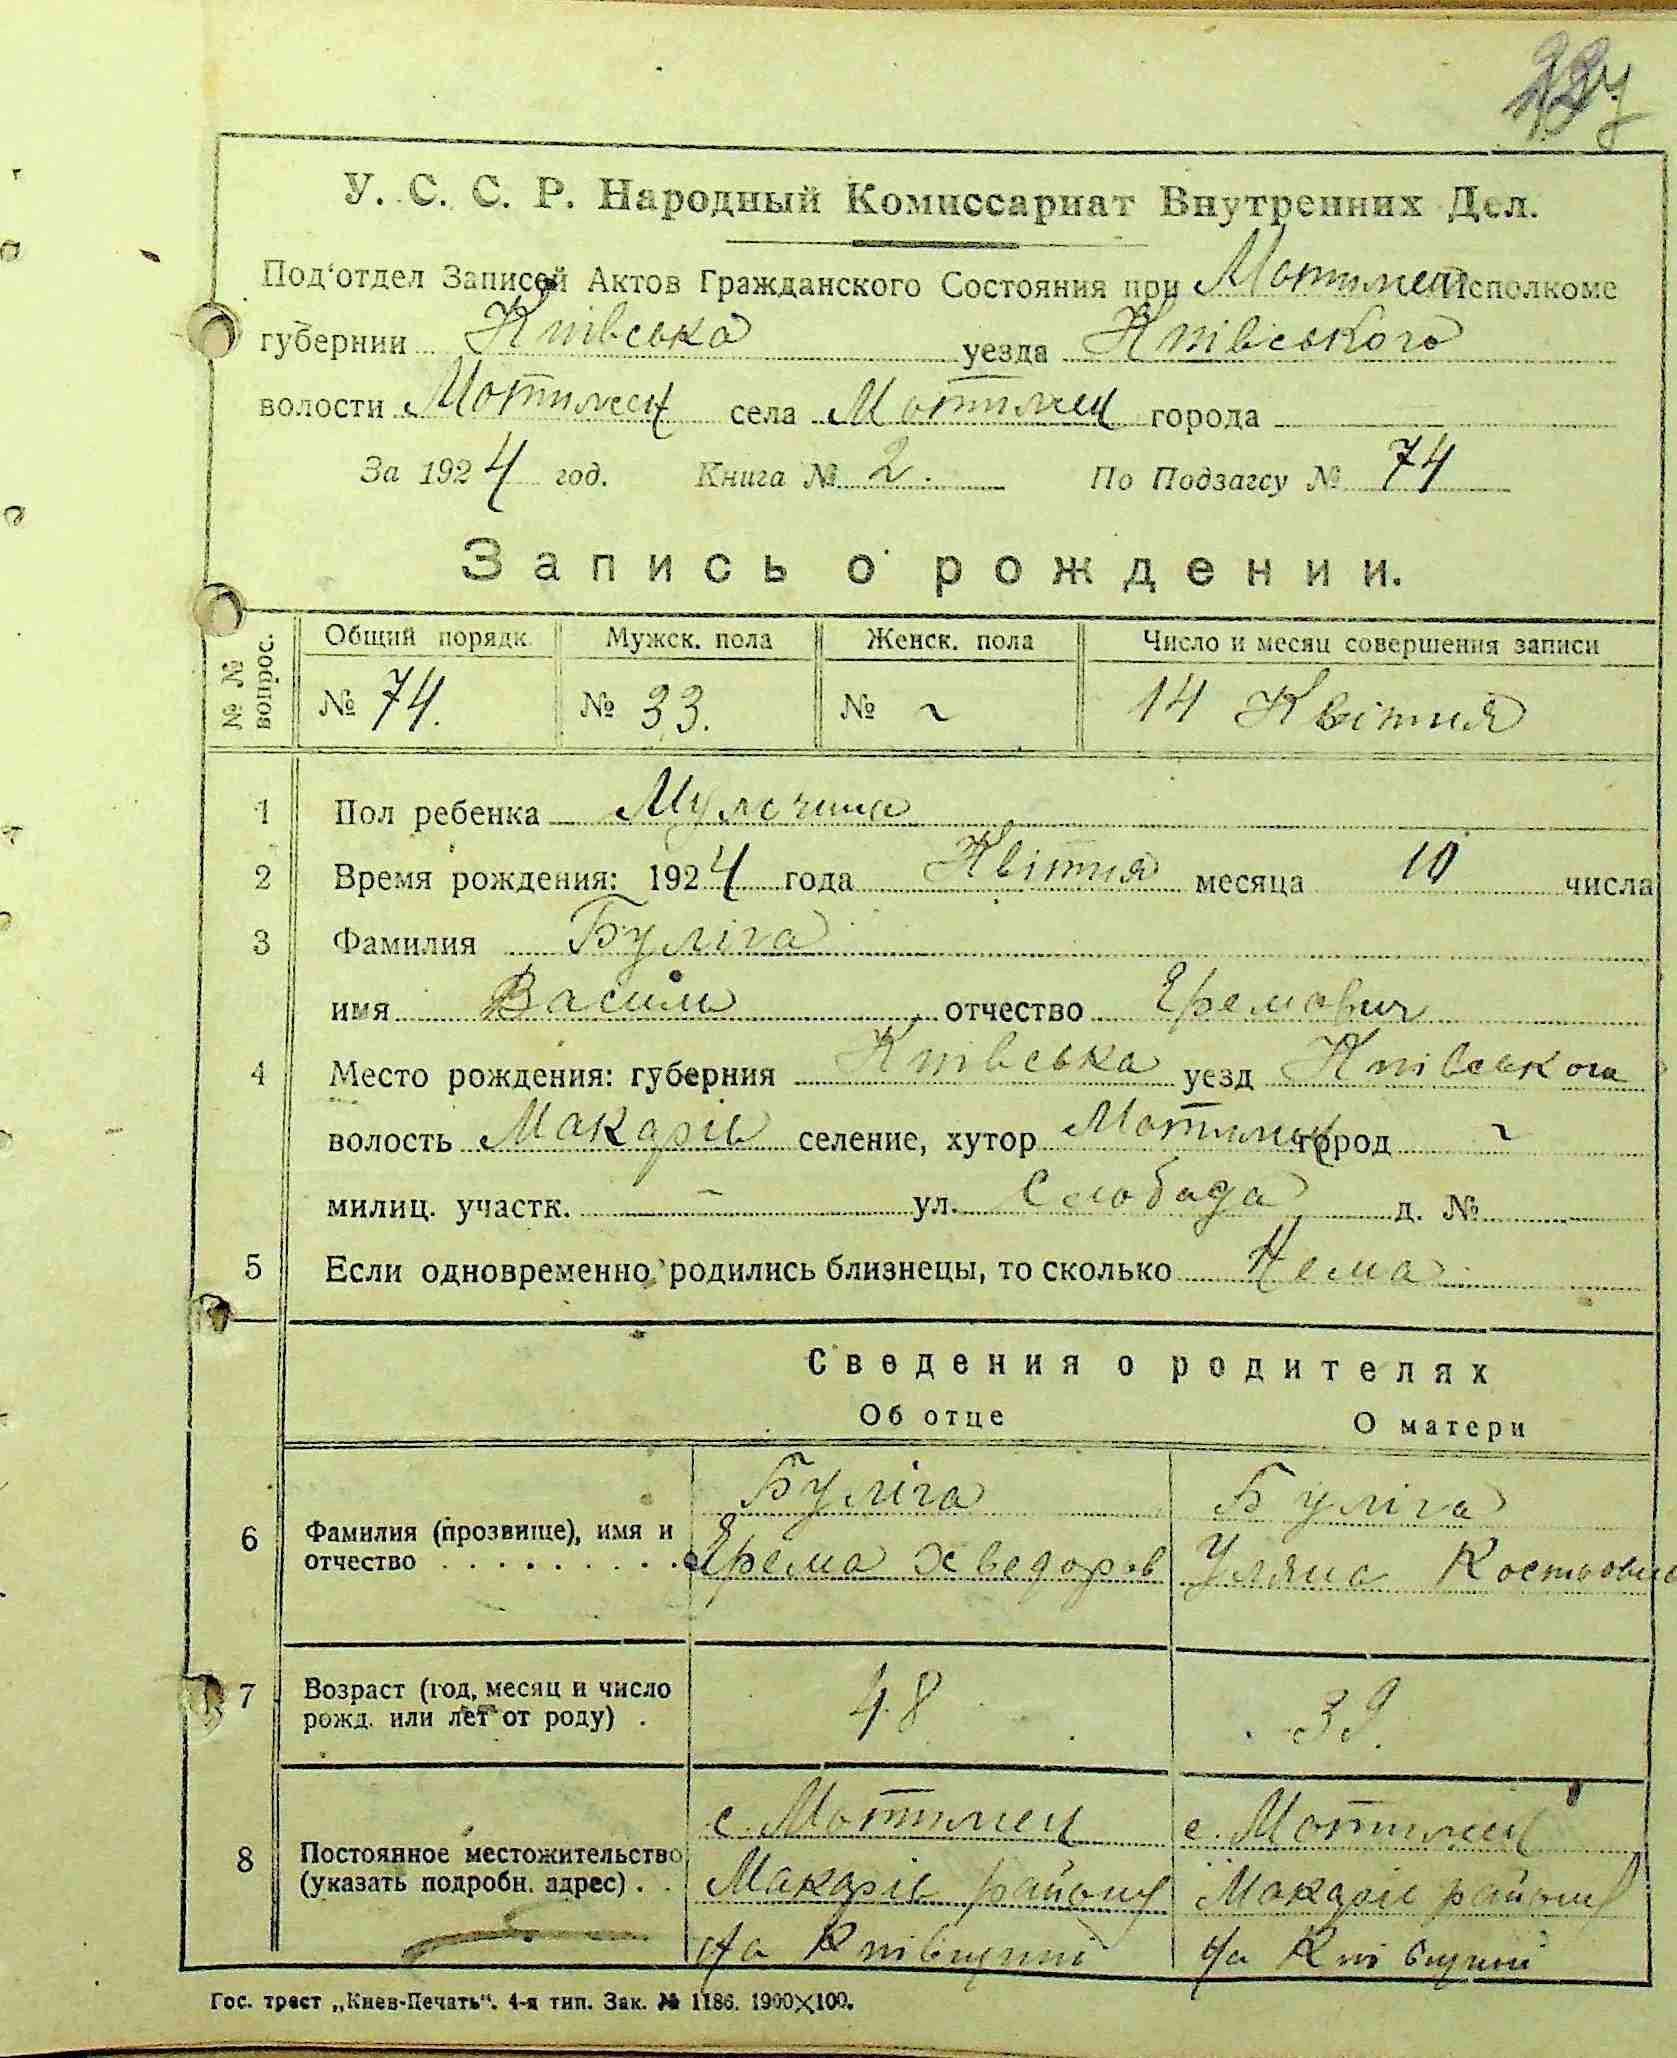 У. С. С. Р. Народный Комиссариат Внутренних Дел.
Под'отдел Записей Актов Гражданского Состояния при Мотижец Исполкоме
губернии Київська уезда Київського
волости Мотижец села Мотижец города
За 1924 год. Книга № 2. По Подзагсу № 74
Запись о рождении.
№ № вопрос. Общий порядк. Мужск. пола Женск. пола Число и месяц совершения записи
№ 74. № 33. № ~ 14 Квітня
1 Пол ребенка Мужчина
2 Время рождения: 1924 года Квітня месяца 10 числа
3 Фамилия Буліга
имя Василь отчество Еремович
4 Место рождения: губерния Київська уезд Київського
волость Макарів селение, хутор Мотижец город ~
милиц. участк. – ул. Слобода д. №
5 Если одновременно родились близнецы, то сколько Нема
Сведения о родителях
Об отце О матери
Буліга Буліга
6 Фамилия (прозвище), имя и отчество Ерема Хведоров Уляна
7 Возраст (год, месяц и число рожд. или лет от роду) 48 39.
с. Мотижец с. Мотижец
8 Постоянное местожительство (указать подробн. адрес) Макарів району Макарів району
на Київщині на Київщині
Гос. трест „Киев-Печать“. 4-я тип. Зак. № 1186. 1900×100.